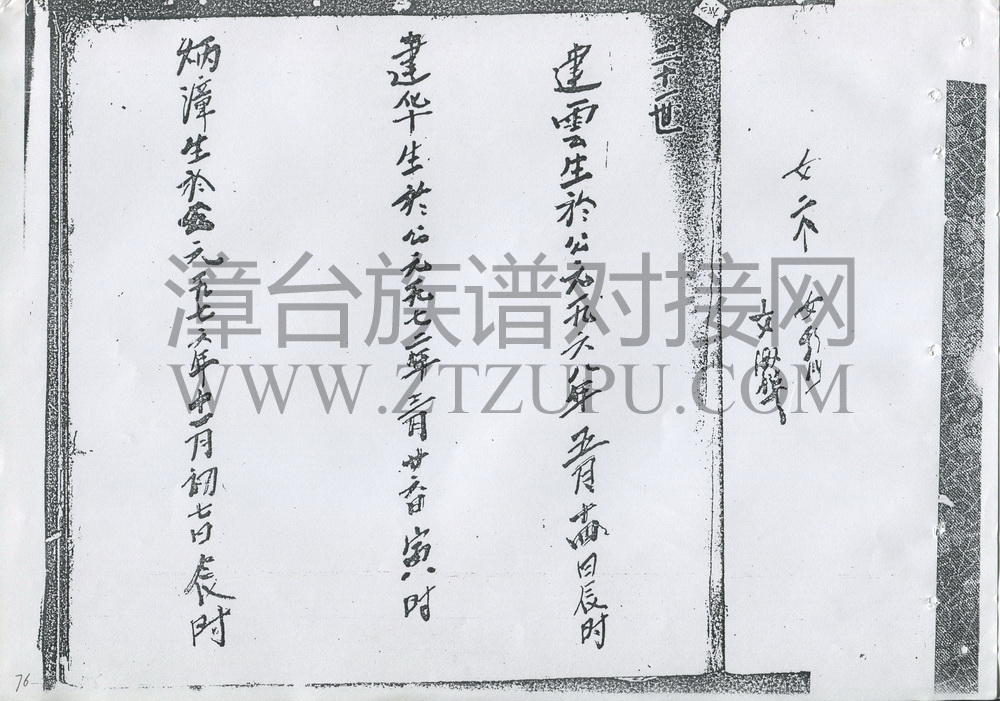 二十一世
建雲生於公元一九六八年五月十四日辰时
建华生於公元一九七二年三月廿六日寅时
炳漳生於公元一九七六年十一月初七日辰时
漳台族谱对接网
WWW.ZTZUPU.COM
76